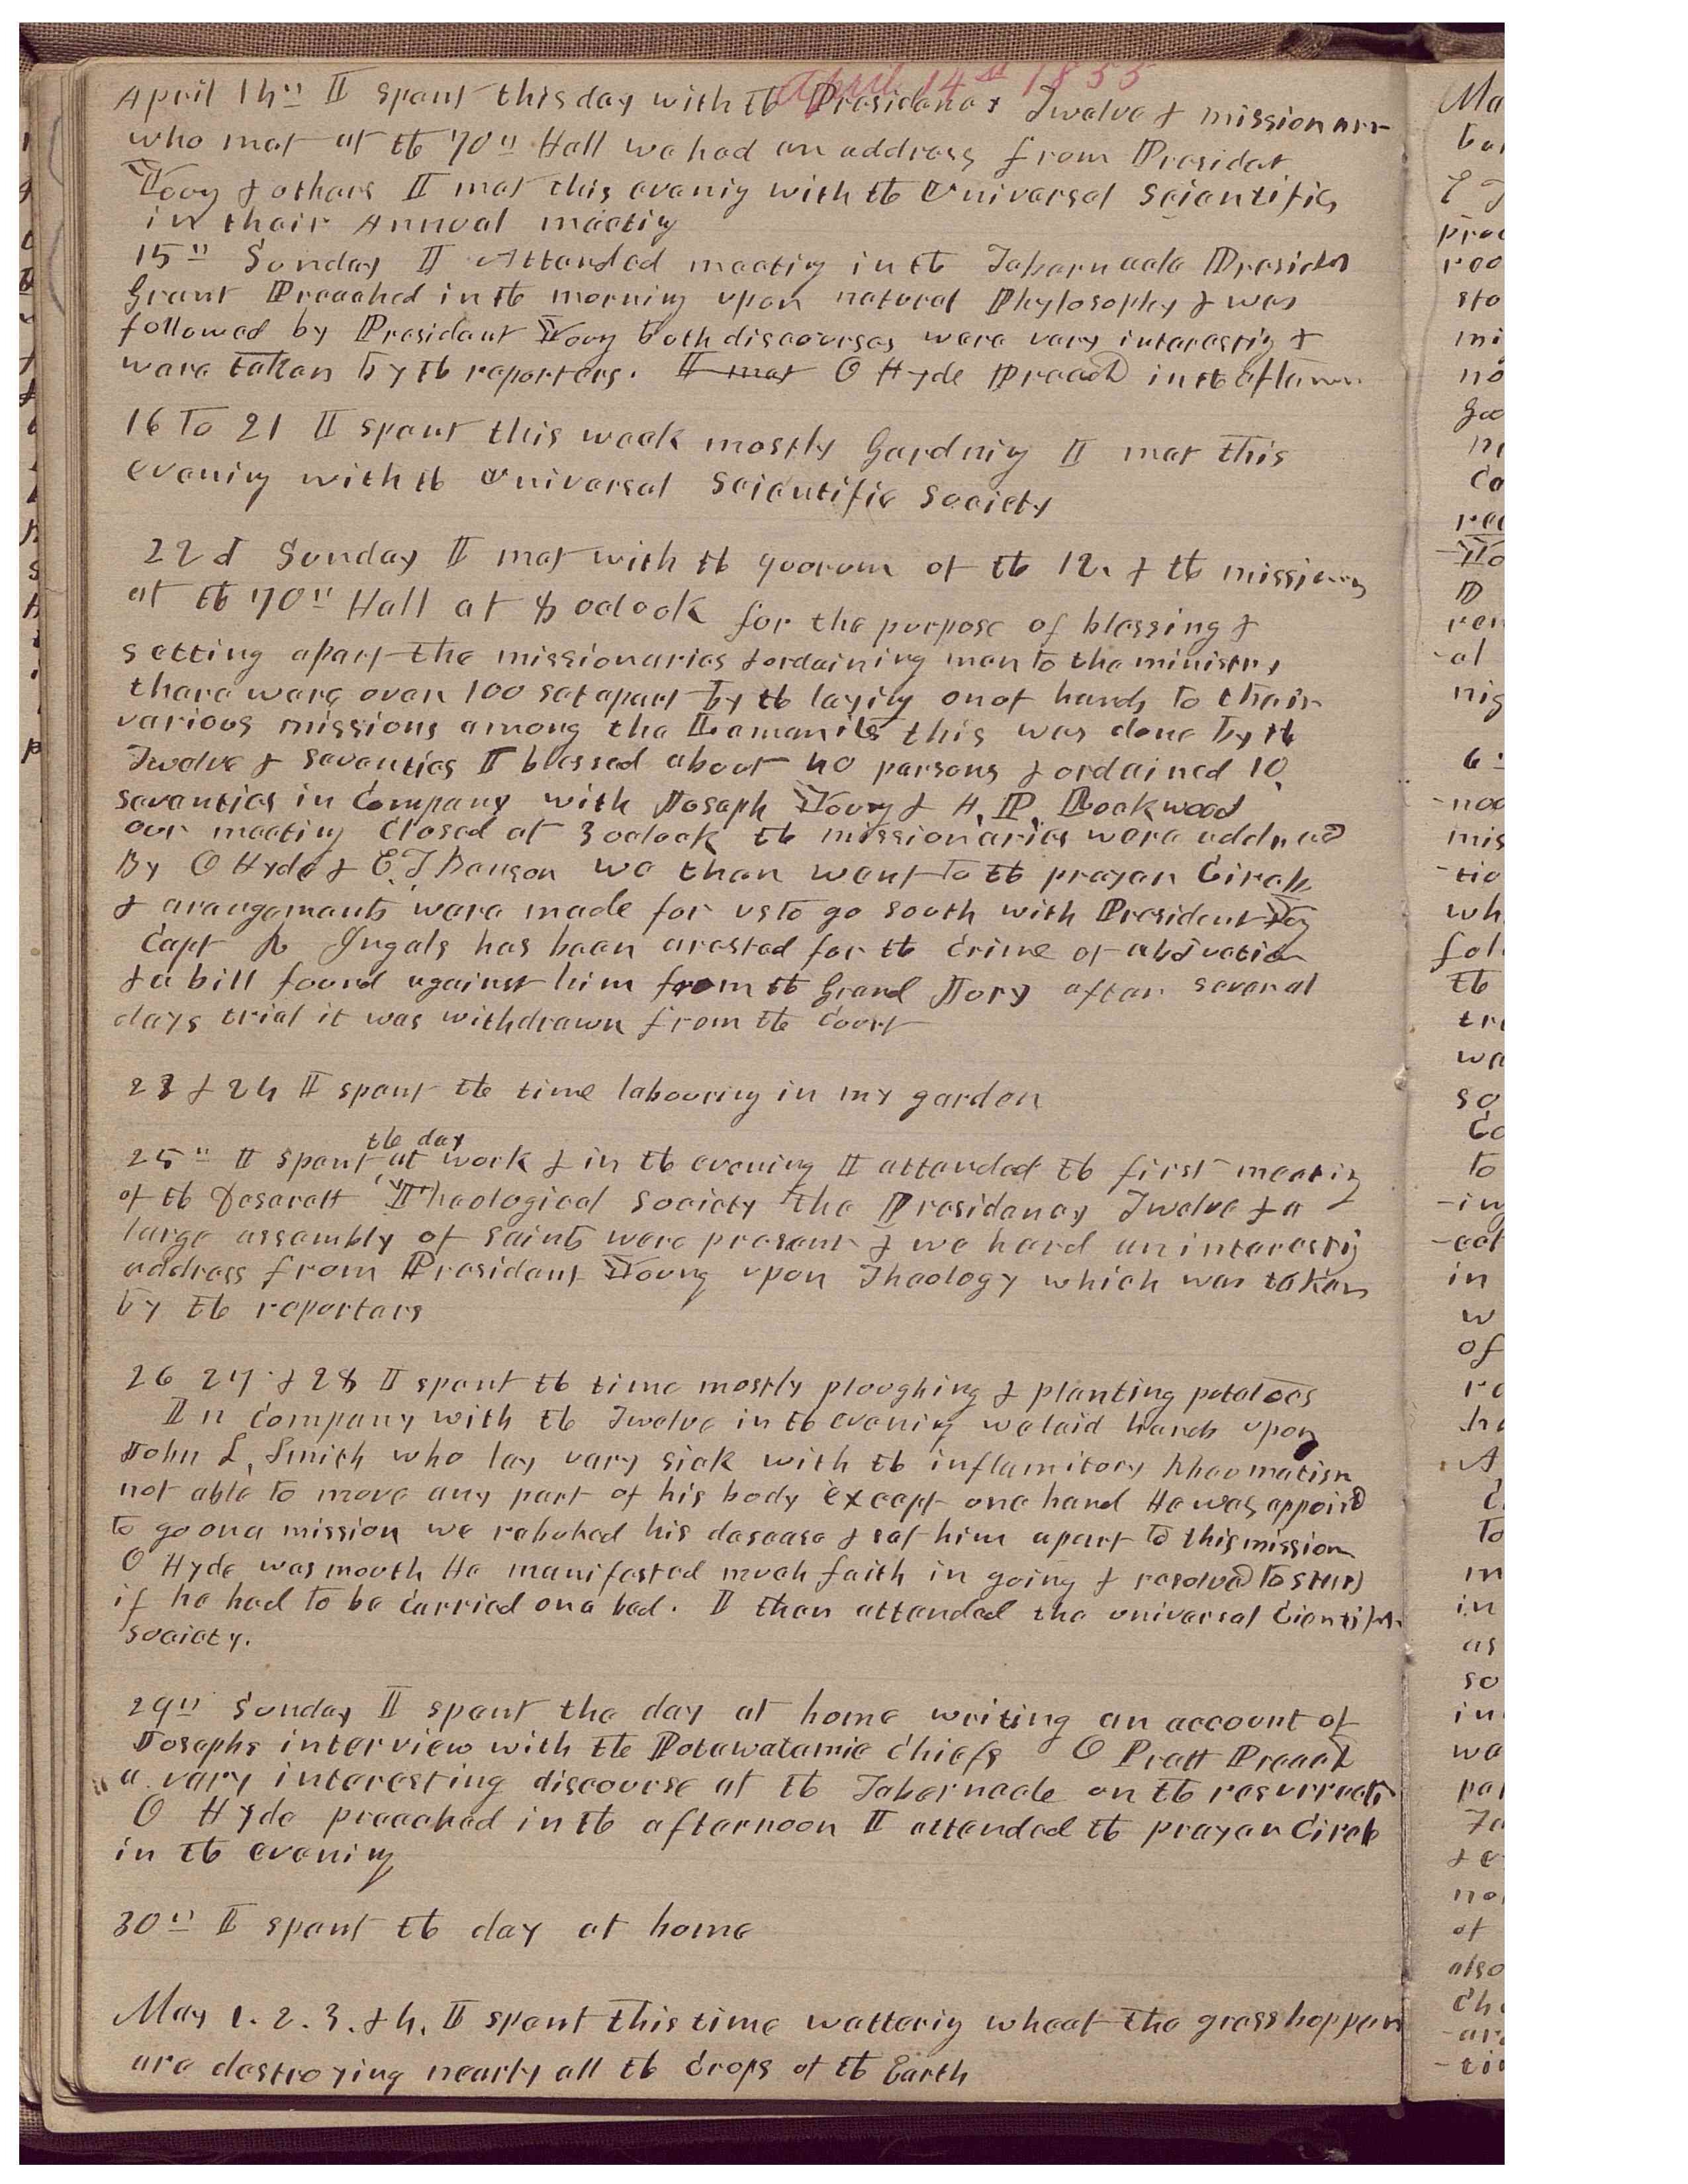 April 14th 1855
April 14th I spent this day with the Presidency Twelve & missionari
who met at the 70th Hall we had an address from Presidet
Youg & others I met this evenig with the Universal Scientific
in their Annual meetig
15th Sunday I Attended meetig in the Tabernacle Presidet
Grant Preached in the morning upon natural Phylosophy & was
followed by President Young both discourses were very interestig &
were taken by the reporters. I met O Hyde Preachd in the afternoon
16 To 21 I spent this week mostly Gardnig I met this
evenig with the Universal Scientific Society
22d Sunday I met with the quorum of the 12. & the missionary
at the 70th Hall at 8 oclock for the purpose of blessing &
setting apart the missionaries & ordaining men to the ministry
there were over 100 set apart by the layig on of hands to their
various missions among the Lamanites this was done by the
Twelve & seventies I blessed about 40 persons & ordained 10
seventies in Company with Joseph Young & A. P. Rockwood
our meetig closed at 3 oclock the missionaries were addresd
By O Hyde & E. T Benson we then went to the prayer Circle
& arangements were made for us to go south with President Yog
Capt R Ingals has been arested for the crime of abduction
& a bill found against him from the Grand Jury after several
days trial it was withdrawn from the Court
23 & 24 I spent the time labouring in my garden
the day
25th I spent at work & in the evening I attended the first meetig
of the Deseret Theological Society The Presidency Twelve & a
large assembly of Saints were present & we hard an interestig
address from President Young upon Theology which was taken
by the reporters
26 27 & 28 I spent the time mostly ploughing & planting potatoes
In Company with the Twelve in the evenig we laid hands upon
John L, Smith who lay very sick with the inflamitory Rheumatism
not able to move any part of his body except one hand He was appointd
to go on a mission we rebuked his desease & set him apart to this mission
O Hyde was mouth He manifested much faith in going & resolved to start
if he had to be carried on a bed. I then attended the universal Cientific
society.
29th Sunday I spent the day at home writing an account of
Josephs interview with the Potawatamie Chiefs O Pratt Preachd
a very interesting discourse at the Tabernacle on the resurrecti
O Hyde preached in the afternoon I attended the prayer Circle
in the evenig
30th I spent the day at home
May 1. 2. 3. & 4. I spent this time watterig wheat the grasshoppers
are destroying nearly all the Crops of the Earth